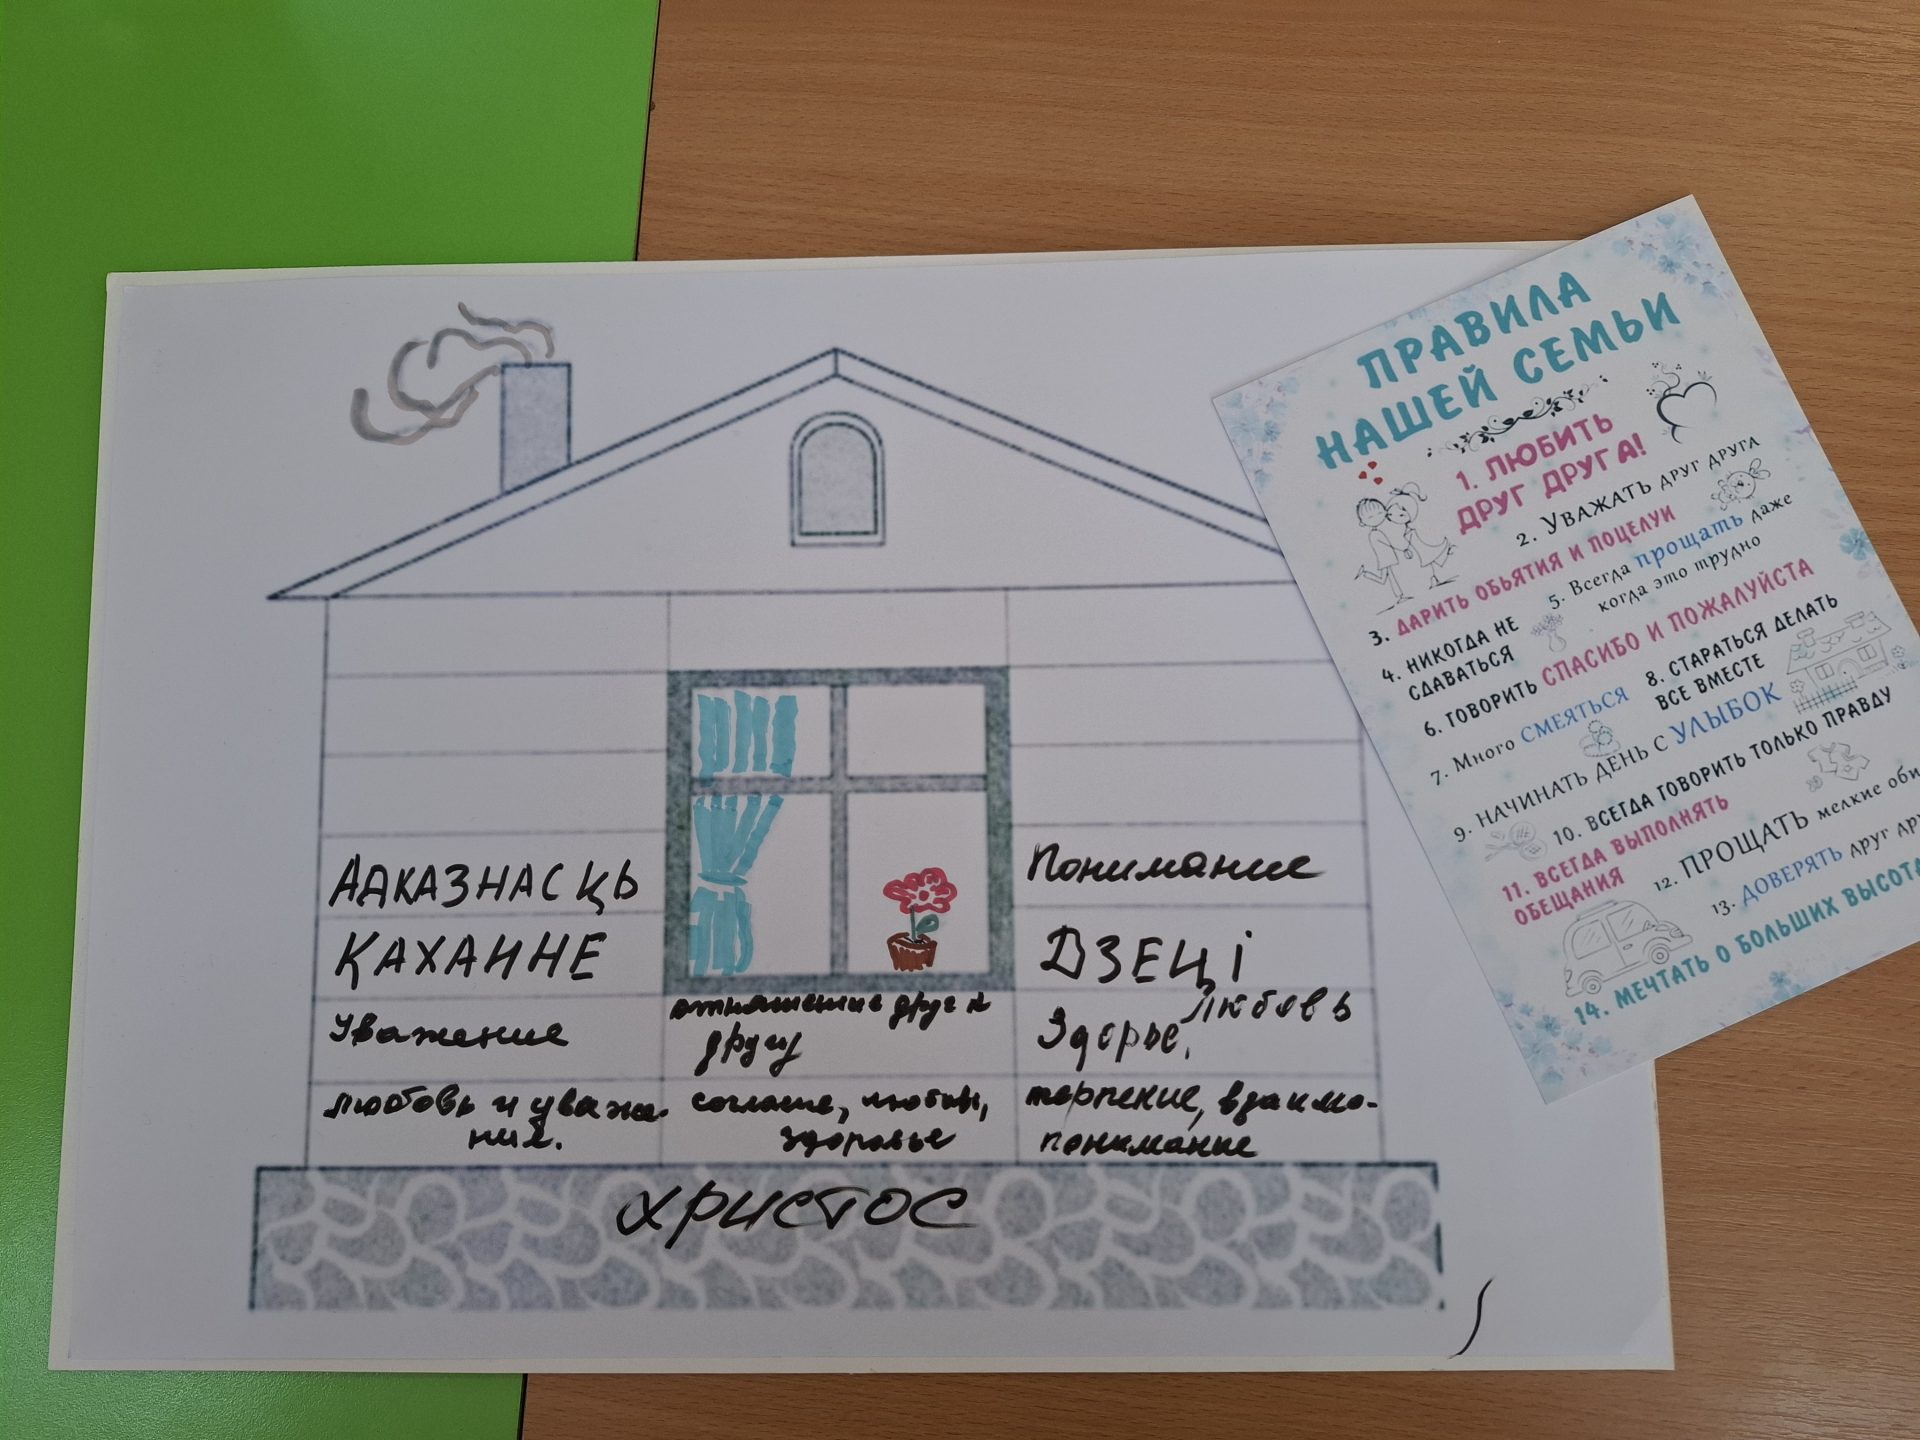 АДКАЗНАСЦЬ
КАХАННЕ
Уважение
любовь и уваже-
ние.
отношение друг к
другу
согласие, любовь,
здоровье
Понимание
ДЗЕЦІ
Любовь
Здорье,
терпение, взаимо-
понимание
ХРИСТОС
ПРАВИЛА
НАШЕЙ СЕМЬИ
1. ЛЮБИТЬ
ДРУГ ДРУГА!
2. УВАЖАТЬ ДРУГ ДРУГА
3. ДАРИТЬ ОБЪЯТИЯ И ПОЦЕЛУИ
4. НИКОГДА НЕ
СДАВАТЬСЯ
5. Всегда прощать даже
когда это трудно
6. ГОВОРИТЬ СПАСИБО И ПОЖАЛУЙСТА
7. Много СМЕЯТЬСЯ
8. СТАРАТЬСЯ ДЕЛАТЬ
ВСЕ ВМЕСТЕ
9. НАЧИНАТЬ ДЕНЬ С УЛЫБОК
10. ВСЕГДА ГОВОРИТЬ ТОЛЬКО ПРАВДУ
11. ВСЕГДА ВЫПОЛНЯТЬ
ОБЕЩАНИЯ
12. ПРОЩАТЬ мелкие
13. ДОВЕРЯТЬ друг
14. МЕЧТАТЬ О БОЛЬШИХ